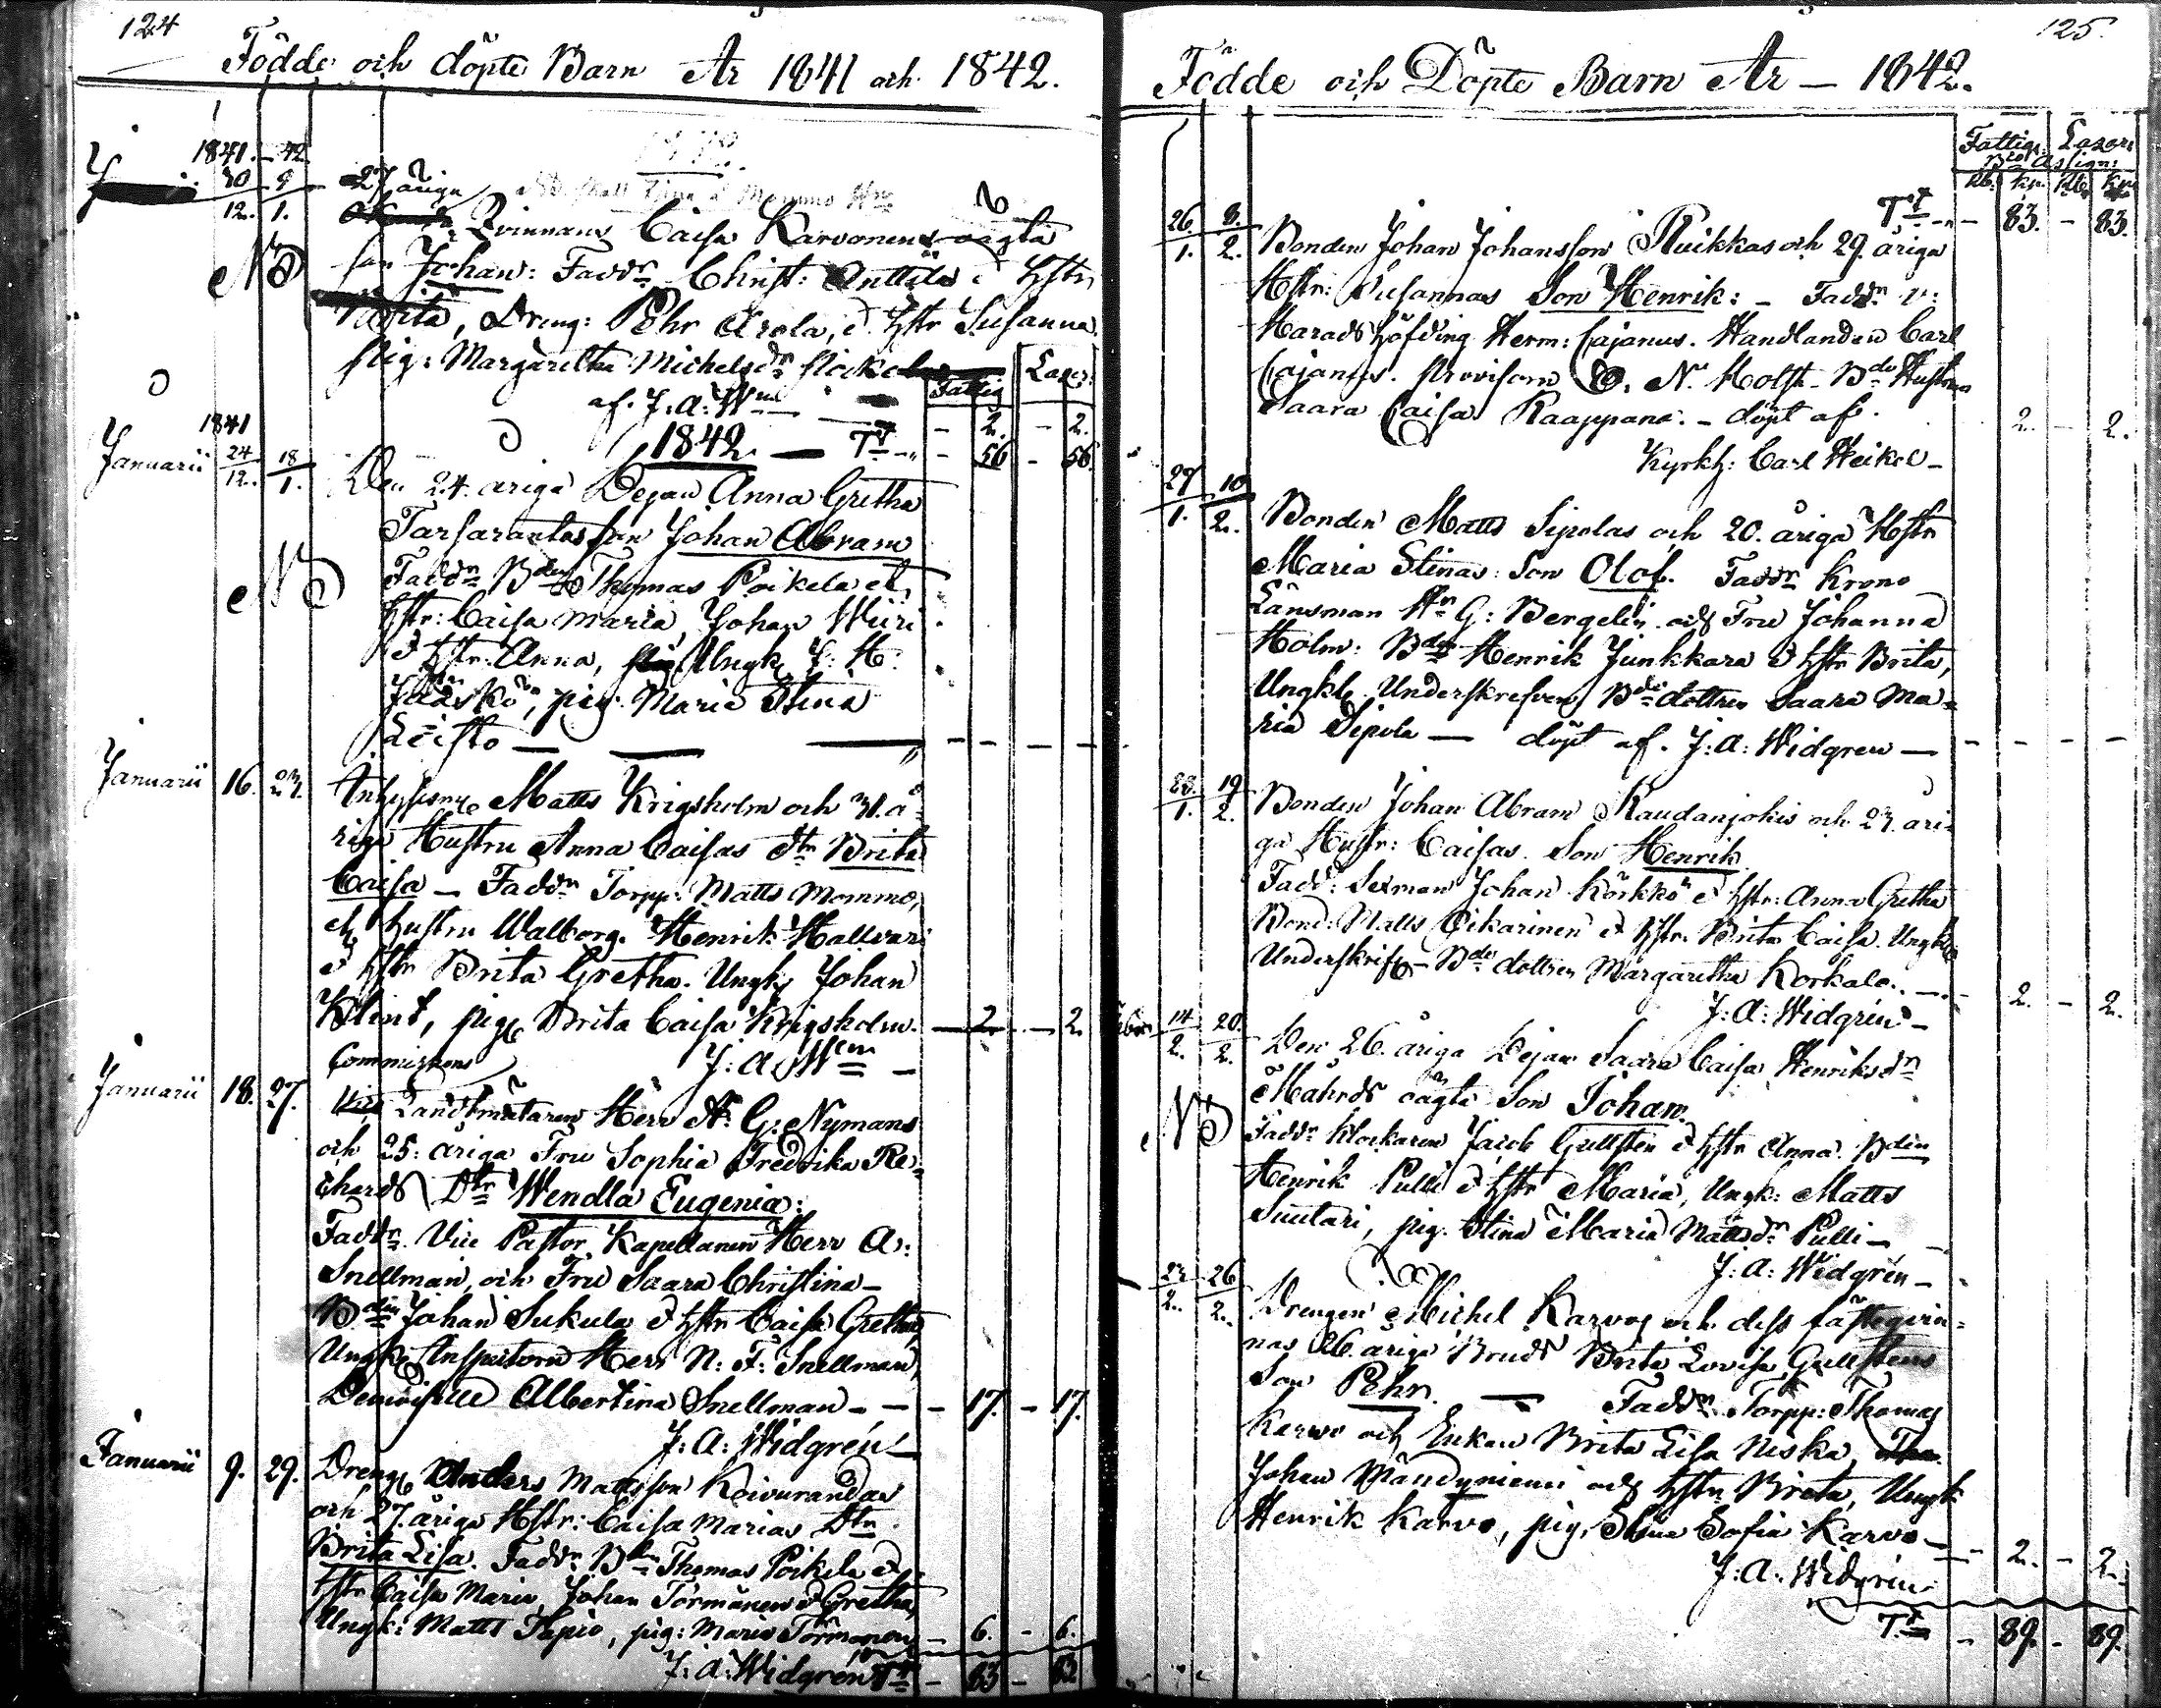 124
Födde och döpte Barn År 1841 och 1842.
1841. - 42
30 9
12. 1.
27 åriga
Qvinnans Caisa Karvonens oägta
son Johan: Fadd:r Christ: Anttila & hstr
Brita, Dreng: Pehr Arola, & hstr Susanna.
pig: Margaretha Michelsd:r
af. J: A: W
Fattig Lazar:
- 2. - 2.
1842. — T:t - 56 - 56.
1841
Januarii 24 18
12. 1.
Den 24. åriga Dejan Anna Gretha
Tarsarantas son Johan Abram
NB
Fadd:r B:den Thomas Poikela et
hstr: Caisa Maria, Johan Wiiri
& hstr: Anna, Ungk J: H:
Jääskö, pig: Maria Stina
Leisto —
Januarii 16. 23.
Inhyses Matts Krigsholm och 31. å-
riga Hustru Anna Caisas d:tr Brita
Caisa — Fadd:r Torpp: Matts Mommo,
och hustru Walborg. Henrik Hallvari
& hstr Brita Gretha. Ungk Johan
Klint, pig Brita Caisa Krigsholm. - 2. - 2.
Commissions J: A: W
Januarii 18. 27.
Landtmätaren Herr A: G: Nymans
och 25: åriga Fru Sophia Fredrika Re-
chards D:tr Wendla Eugenia:
Fadd:r Vice Pastor Kapellanen Herr A:
Snellman, och Fru Saara Christina —
B:den Johan Sukula & hstr Caisa Gretha,
Ungk Inspectorn Herr N: F: Snellman,
Demoiselle Albertina Snellman - - 17. - 17.
J: A: Widgrén
Januarii 9. 29.
Dreng Anders Mattsson Koivurandas
och 27. åriga Hstr: Caisa Marias Dtr
Brita Lisa. Fadd:r B:den Thomas Poikela &
hstr Caisa Maria, Johan Törmänen & Gretha,
Ungk: Matts Tapio, pig: Maria Törmänen - 6. - 6.
J: A: Widgrén T:t - 83 - 83
125.
Födde och Döpte Barn År — 1842.
Fattig: Lazar:
B:co Assign:
Rb: kp. Rb: kp.
T:t - 83. - 83.
26. 8.
1. 2.
Bonden Johan Johansson Ruikkas och 29. åriga
Hstr: Susannas Son Henrik: — Fadd:r v:
Häradshöfding Herm: Cajanus. Handlanden Carl
Cajanus. Provisorn N. Holst. B:de Hustrun
Saara Caisa Raappana. — döpt af. 2. - 2.
Kyrkh: Carl Heikel —
27 10
1. 2.
Bonden Matts Sipolas och 20. åriga Hstr
Maria Stinas: Son Olof. Fadd:r Krono
Länsman H:r G: Bergelin och Fru Johanna
Holm: B:den Henrik Junkkara & hstr Brita,
Ungk Underskrefven B:de dottren Saara Ma-
ria Sipola — döpt af. J: A: Widgren —
28. 19
1. 2.
Bonden Johan Abram Raudanjokis och 27. åri-
ga Hustr: Caisas. Son Henrik
Fadd: Sexman Johan Körkkö & hstr: Anna Gretha
Bond: Matts Oikarinen & hstr. Brita Caisa. Ungk
Underskrif: B:de dottren Margaretha Korkalo. - 2. - 2.
J: A: Widgrén —
14 20.
2. 2.
Den 26. åriga Dejan Saara Caisa Henriksd:r
Mährds oägta Son Johan.
NB
Fadd:r Klockaren Jacob Gullsten & hstr Anna. B:den
Henrik Pulli & hstr Maria, Ungk: Matts
Suutari, pig. Stina Maria Mattsd:r Pulli —
J: A: Widgrén —
23 26
2. 2.
Drengen Michel Karvos och dess fästeqvin-
nas 26. åriga Brud Brita Lovisa Gullstens
Son Pehr. — Fadd:r Torpp: Thomas
Karvo och Enkan Brita Lisa Niska,
Johan Mändyniemi och hstr Brita, Ungk
Henrik Karvo, pig, Stina Sofia Karvo — - 2. - 2.
J: A: Widgrén
T:t - 89. - 89.